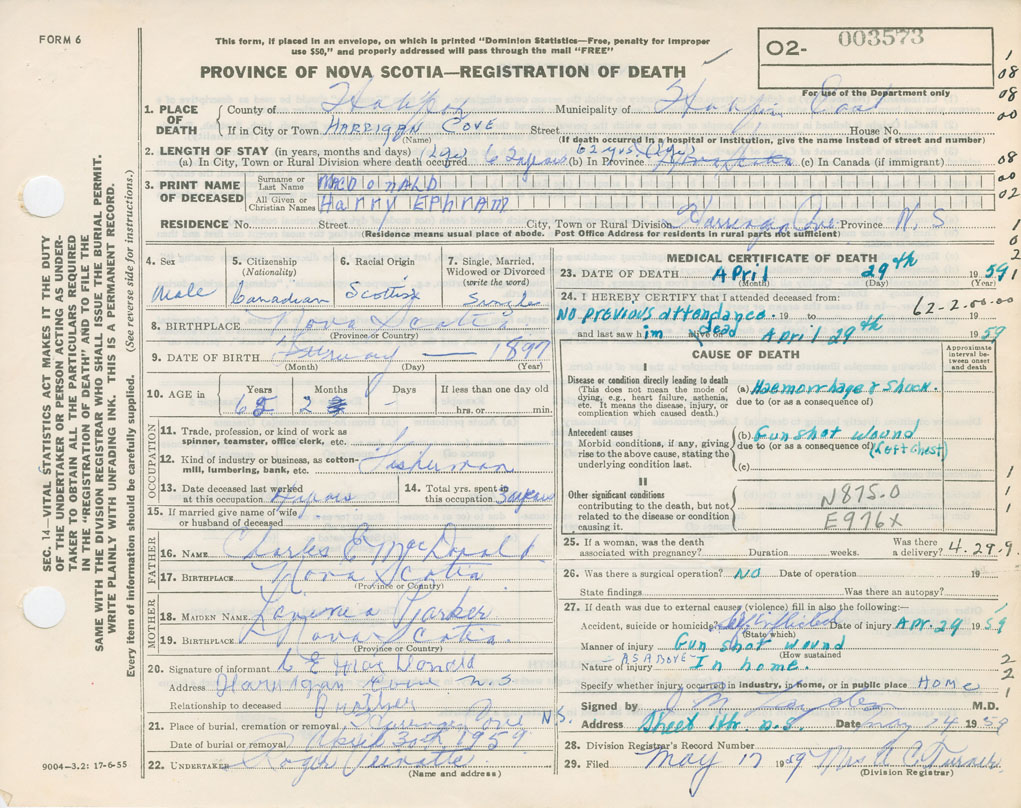 FORM 6
This form, if placed in an envelope, on which is printed "Dominion Statistics—Free, penalty for improper
use $50," and properly addressed will pass through the mail "FREE"
PROVINCE OF NOVA SCOTIA—REGISTRATION OF DEATH
O2- 003573
For use of the Department only
1
08
08
00
08
00
02
1
0
2
1
SEC. 14—VITAL STATISTICS ACT MAKES IT THE DUTY
OF THE UNDERTAKER OR PERSON ACTING AS UNDER-
TAKER TO OBTAIN ALL THE PARTICULARS REQUIRED
IN THE "REGISTRATION OF DEATH" AND TO FILE THE
SAME WITH THE DIVISION REGISTRAR WHO SHALL ISSUE THE BURIAL PERMIT.
WRITE PLAINLY WITH UNFADING INK. THIS IS A PERMANENT RECORD.
Every item of information should be carefully supplied. (See reverse side for instructions.)
1. PLACE OF DEATH
County of Halifax Municipality of Halifax East
If in City or Town HARRIGAN COVE Street House No.
(Name) (If death occurred in a hospital or institution, give the name instead of street and number)
2. LENGTH OF STAY (in years, months and days) (age) 62 yrs. (age)
(a) In City, Town or Rural Division where death occurred 62 years (b) In Province Nova Scotia (c) In Canada (if immigrant)
3. PRINT NAME OF DECEASED
Surname or Last Name MACDONALD
All Given or Christian Names HARRY EPHRAM
RESIDENCE No. Street City, Town or Rural Division Harrigan Cove Province N.S
(Residence means usual place of abode. Post Office Address for residents in rural parts not sufficient)
4. Sex
Male
5. Citizenship
(Nationality)
Canadian
6. Racial Origin
Scottish
7. Single, Married,
Widowed or Divorced
(write the word)
Single
8. BIRTHPLACE Nova Scotia
(Province or Country)
9. DATE OF BIRTH February — 1897
(Month) (Day) (Year)
10. AGE in
Years 62
Months 2
Days -
If less than one day old
hrs. or min.
OCCUPATION
11. Trade, profession, or kind of work as
spinner, teamster, office clerk, etc.
12. Kind of industry or business, as cotton-
mill, lumbering, bank, etc. Fisherman
13. Date deceased last worked
at this occupation years
14. Total yrs. spent in
this occupation years
15. If married give name of wife
or husband of deceased
FATHER
16. NAME Charles E MacDonald
17. BIRTHPLACE Nova Scotia
(Province or Country)
MOTHER
18. MAIDEN NAME Parker
19. BIRTHPLACE Nova Scotia
(Province or Country)
20. Signature of informant C E MacDonald
Address Harrigan Cove N.S
Relationship to deceased Brother
21. Place of burial, cremation or removal Harrigan Cove N.S.
Date of burial or removal April 30th 1959
22. UNDERTAKER
(Name and address)
9004—3.2: 17-6-55
MEDICAL CERTIFICATE OF DEATH
23. DATE OF DEATH April 29th 1959
(Month) (Day) (Year)
24. I HEREBY CERTIFY that I attended deceased from: 62-2-00-00
No previous attendance 19 to 19
and last saw him alive on dead April 29th 1959
CAUSE OF DEATH
Approximate interval between onset and death
Disease or condition directly leading to death
(This does not mean the mode of
dying, e.g., heart failure, asthenia,
etc. It means the disease, injury, or
complication which caused death.)
(a) Haemorrhage & Shock.
due to (or as a consequence of)
Antecedent causes
Morbid conditions, if any, giving
rise to the above cause, stating the
underlying condition last.
(b) Gun shot wound
due to (or as a consequence of) (Left Chest)
(c)
II
Other significant conditions
contributing to the death, but not
related to the disease or condition
causing it.
N875.0
E976X
1
1
1
25. If a woman, was the death
associated with pregnancy? Duration weeks.
Was there
a delivery? 4.29.9
26. Was there a surgical operation? NO Date of operation 19
State findings Was there an autopsy?
27. If death was due to external causes (violence) fill in also the following:—
Accident, suicide or homicide? Date of injury Apr. 29 1959
(State which)
Manner of injury Gun shot wound
(How sustained
Nature of injury - AS ABOVE - In home.
Specify whether injury occurred in industry, in home, or in public place HOME
2
2
1
Signed by M.D.
Address Sheet Hbr. N.S. Date May 14 1959
28. Division Registrar's Record Number
29. Filed May 17 1959 Mrs Turner
(Division Registrar)